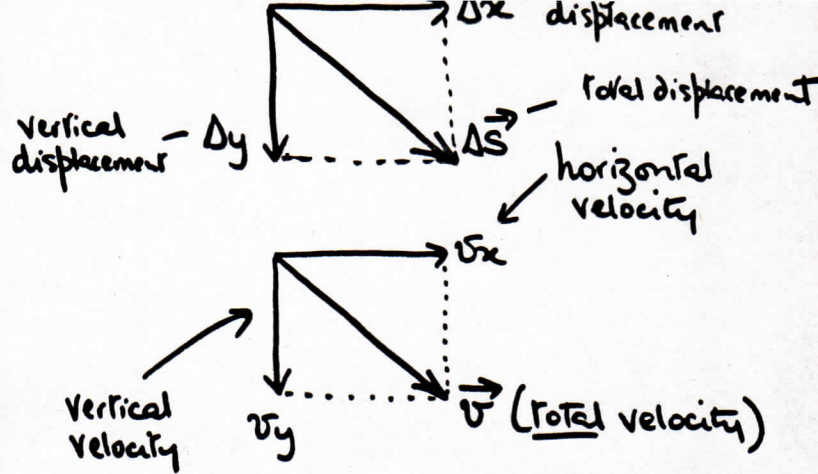 Δx displacement
total displacement
vertical
displacement
Δy
ΔS
horizontal
velocity
vx
vertical
velocity
vy
v (total velocity)